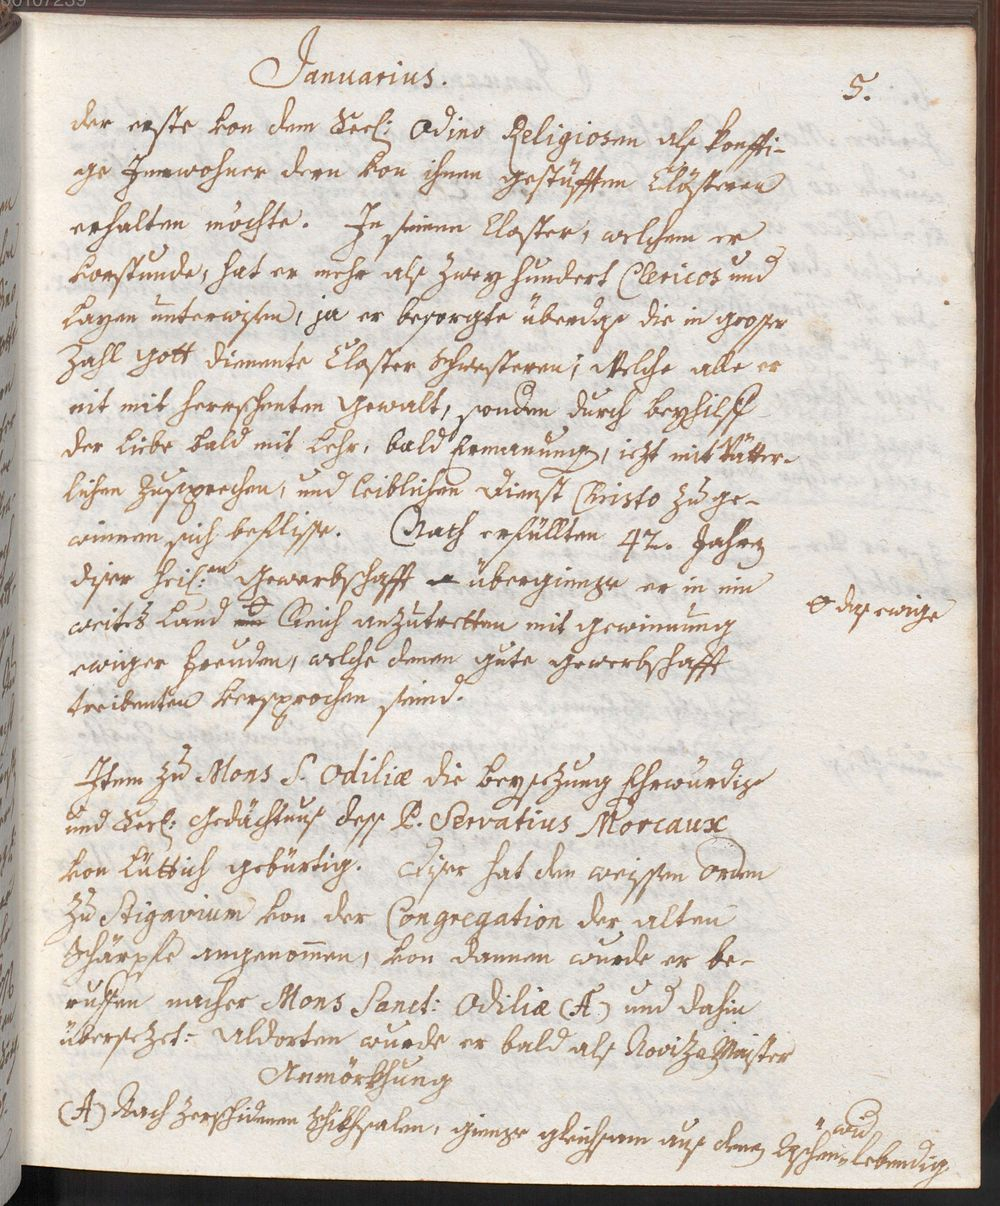 Januarius.
5.
der erste von dem Seel: Odino Religiosen als künffti-
ge Innwohner deren von ihme gestüfften Clösteren
erhalten möchte. In seinem Closter, welchem er
vorstunde, hat er mehr als zwey hundert Clericos und
Layen unterwisen, ja er besorgte überdiß die in grosser
Zahl Gott dienente Closter Schwesteren; Welche alle er
nit mit herrschenten Gewalt, sonden durch beyhilff
der Liebe bald mit Lehr, bald Ermanung, iezt mit Vätter-
lichen Zusprechen, und leiblichen Dienst Christo zu ge-
winnen sich beflisse. Nach erfüllten 42. Jahren
diser heil:en Gewerbschafft übergienge er in ein
weites Land Reich anzutretten mit gewinnung
⊕ das ewige
ewiger freuden, welche denen gute gewerbschafft
treibenten versprochen seind.
Item zu Mons S. Odiliæ die beysezung Ehrwürdige
und Seel: Gedächtnus dess P. Servatius Moreaux
von Lüttich gebürtig. Diser hat den weissen Orden
zu Stigavium von der Congregation der alten
Schärpfe angenommen, von dannen wurde er be-
ruffen nacher Mons Sanct: Odiliæ (A) und dahin
übersezet: Aldorten wurde er bald als Noviz Meister
Anmörkhung
(A) Nach zerschidenen Schikhsalen, gienge gleichsam aus denen Äschen lebendig